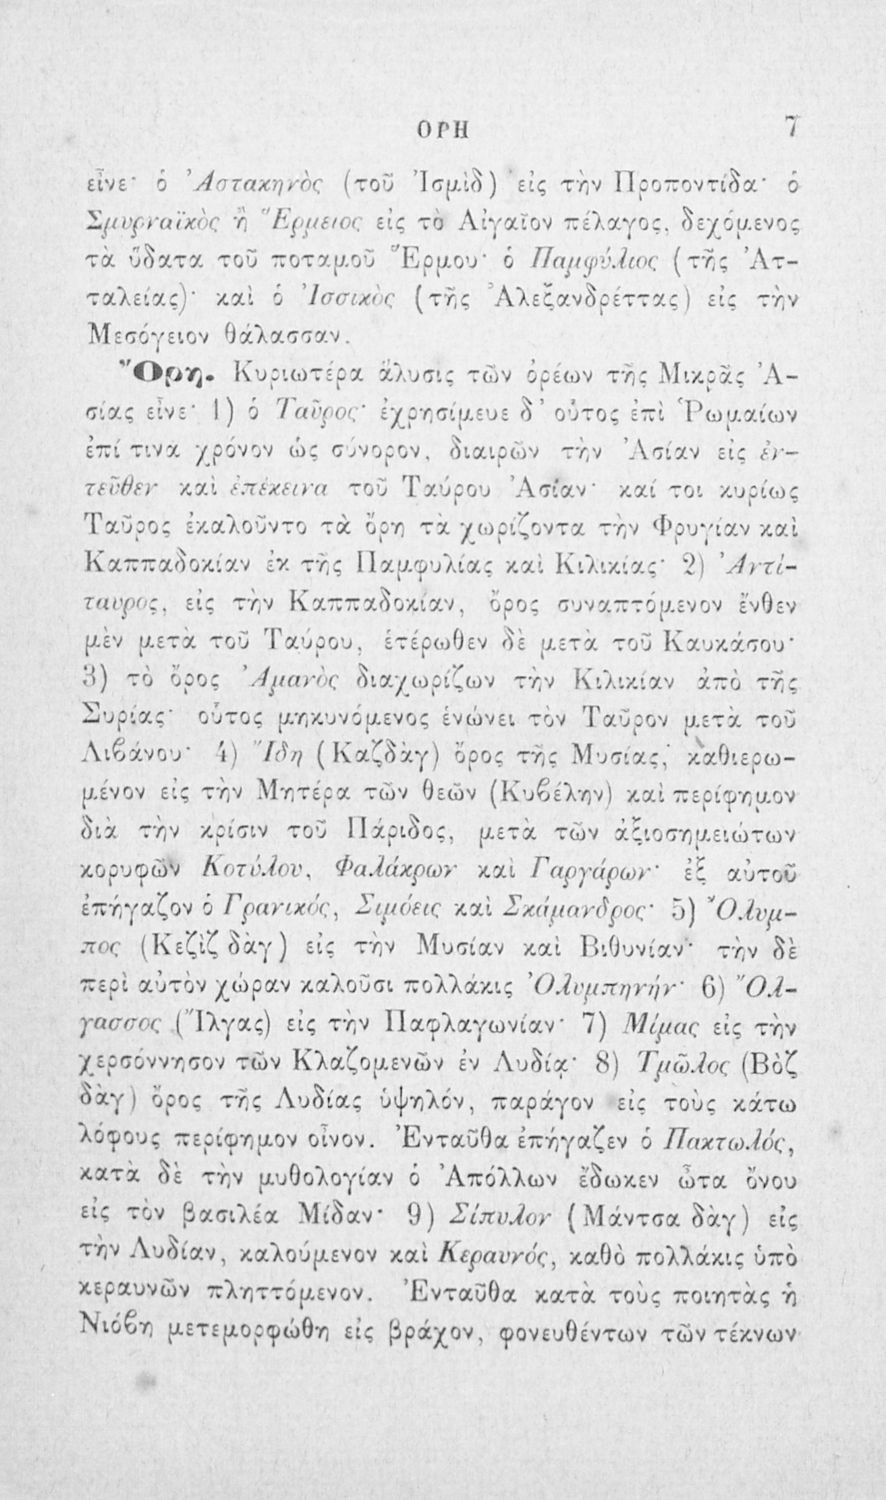 ΟΡΗ 7
εἶνε· ὁ Ἀστακηνὸς (τοῦ Ἰσμὶδ) εἰς τὴν Προποντίδα· ὁ
Σμυρναϊκὸς ἢ Ἕρμειος εἰς τὸ Αἰγαῖον πέλαγος, δεχόμενος
τὰ ὕδατα τοῦ ποταμοῦ Ἕρμου· ὁ Παμφύλιος (τῆς Ἀτ-
ταλείας)· καὶ ὁ Ἰσσικὸς (τῆς Ἀλεξανδρέττας) εἰς τὴν
Μεσόγειον θάλασσαν.
Ὄρη. Κυριωτέρα ἅλυσις τῶν ὀρέων τῆς Μικρᾶς Ἀ-
σίας εἶνε· 1) ὁ Ταῦρος· ἐχρησίμευε δ' οὗτος ἐπὶ Ῥωμαίων
ἐπί τινα χρόνον ὡς σύνορον, διαιρῶν τὴν Ἀσίαν εἰς ἐν-
τεῦθεν καὶ ἐπέκεινα τοῦ Ταύρου Ἀσίαν· καί τοι κυρίως
Ταῦρος ἐκαλοῦντο τὰ ὄρη τὰ χωρίζοντα τὴν Φρυγίαν καὶ
Καππαδοκίαν ἐκ τῆς Παμφυλίας καὶ Κιλικίας· 2) Ἀντί-
ταυρος, εἰς τὴν Καππαδοκίαν, ὄρος συναπτόμενον ἔνθεν
μὲν μετὰ τοῦ Ταύρου, ἑτέρωθεν δὲ μετὰ τοῦ Καυκάσου·
3) τὸ ὄρος Ἀμανὸς διαχωρίζων τὴν Κιλικίαν ἀπὸ τῆς
Συρίας· οὗτος μηκυνόμενος ἑνώνει τὸν Ταῦρον μετὰ τοῦ
Λιβάνου· 4) Ἴδη (Καζδὰγ) ὄρος τῆς Μυσίας, καθιερω-
μένον εἰς τὴν Μητέρα τῶν θεῶν (Κυβέλην) καὶ περίφημον
διὰ τὴν κρίσιν τοῦ Πάριδος, μετὰ τῶν ἀξιοσημειώτων
κορυφῶν Κοτύλου, Φαλάκρων καὶ Γαργάρων· ἐξ αὐτοῦ
ἐπήγαζον ὁ Γρανικός, Σιμόεις καὶ Σκάμανδρος· 5) Ὄλυμ-
πος (Κεζὶζ δὰγ) εἰς τὴν Μυσίαν καὶ Βιθυνίαν· τὴν δὲ
περὶ αὐτὸν χώραν καλοῦσι πολλάκις Ὀλυμπηνήν· 6) Ὄλ-
γασσος (Ἴλγας) εἰς τὴν Παφλαγωνίαν· 7) Μίμας εἰς τὴν
χερσόννησον τῶν Κλαζομενῶν ἐν Λυδίᾳ· 8) Τμῶλος (Βὸζ
δὰγ) ὄρος τῆς Λυδίας ὑψηλόν, παράγον εἰς τοὺς κάτω
λόφους περίφημον οἶνον. Ἐνταῦθα ἐπήγαζεν ὁ Πακτωλός,
κατὰ δὲ τὴν μυθολογίαν ὁ Ἀπόλλων ἔδωκεν ὦτα ὄνου
εἰς τὸν βασιλέα Μίδαν· 9) Σίπυλον (Μάντσα δὰγ) εἰς
τὴν Λυδίαν, καλούμενον καὶ Κεραυνός, καθὸ πολλάκις ὑπὸ
κεραυνῶν πληττόμενον. Ἐνταῦθα κατὰ τοὺς ποιητὰς ἡ
Νιόβη μετεμορφώθη εἰς βράχον, φονευθέντων τῶν τέκνων